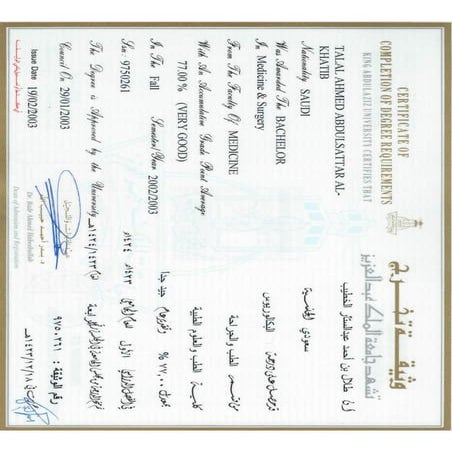 CERTIFICATE OF
COMPLETION OF DEGREE REQUIREMENTS
KING ABDULAZIZ UNIVERSITY CERTIFIES THAT
TALAL AHMED ABDULSATTAR AL-
KHATIB
Nationality SAUDI
Was Awarded The BACHELOR
In Medicine & Surgery
From The Faculty Of MEDICINE
With An Accumulation Grade Point Average
77.00% (VERY GOOD)
In The Fall Semester/Year 2002/2003
S.n: 9750261
The Degree is Approved by the University
Council On 29/01/2003
Issue Date 19/02/2003
Dean of Admission and Registration
وثيقة تخرج
تشهد جامعة الملك عبدالعزيز
أن / طلال بن احمد عبدالستار الخطيب
سعودي الجنسية
قد حصل على درجة البكالوريوس
الطب والجراحة
كلية الطب والعلوم الطبية
٧٧,٠٠ % جيد جدا
الأول
رقم الوثيقة : ٩٧٥٠٢٦١
١٤٢٣/١٢/١٨هـ